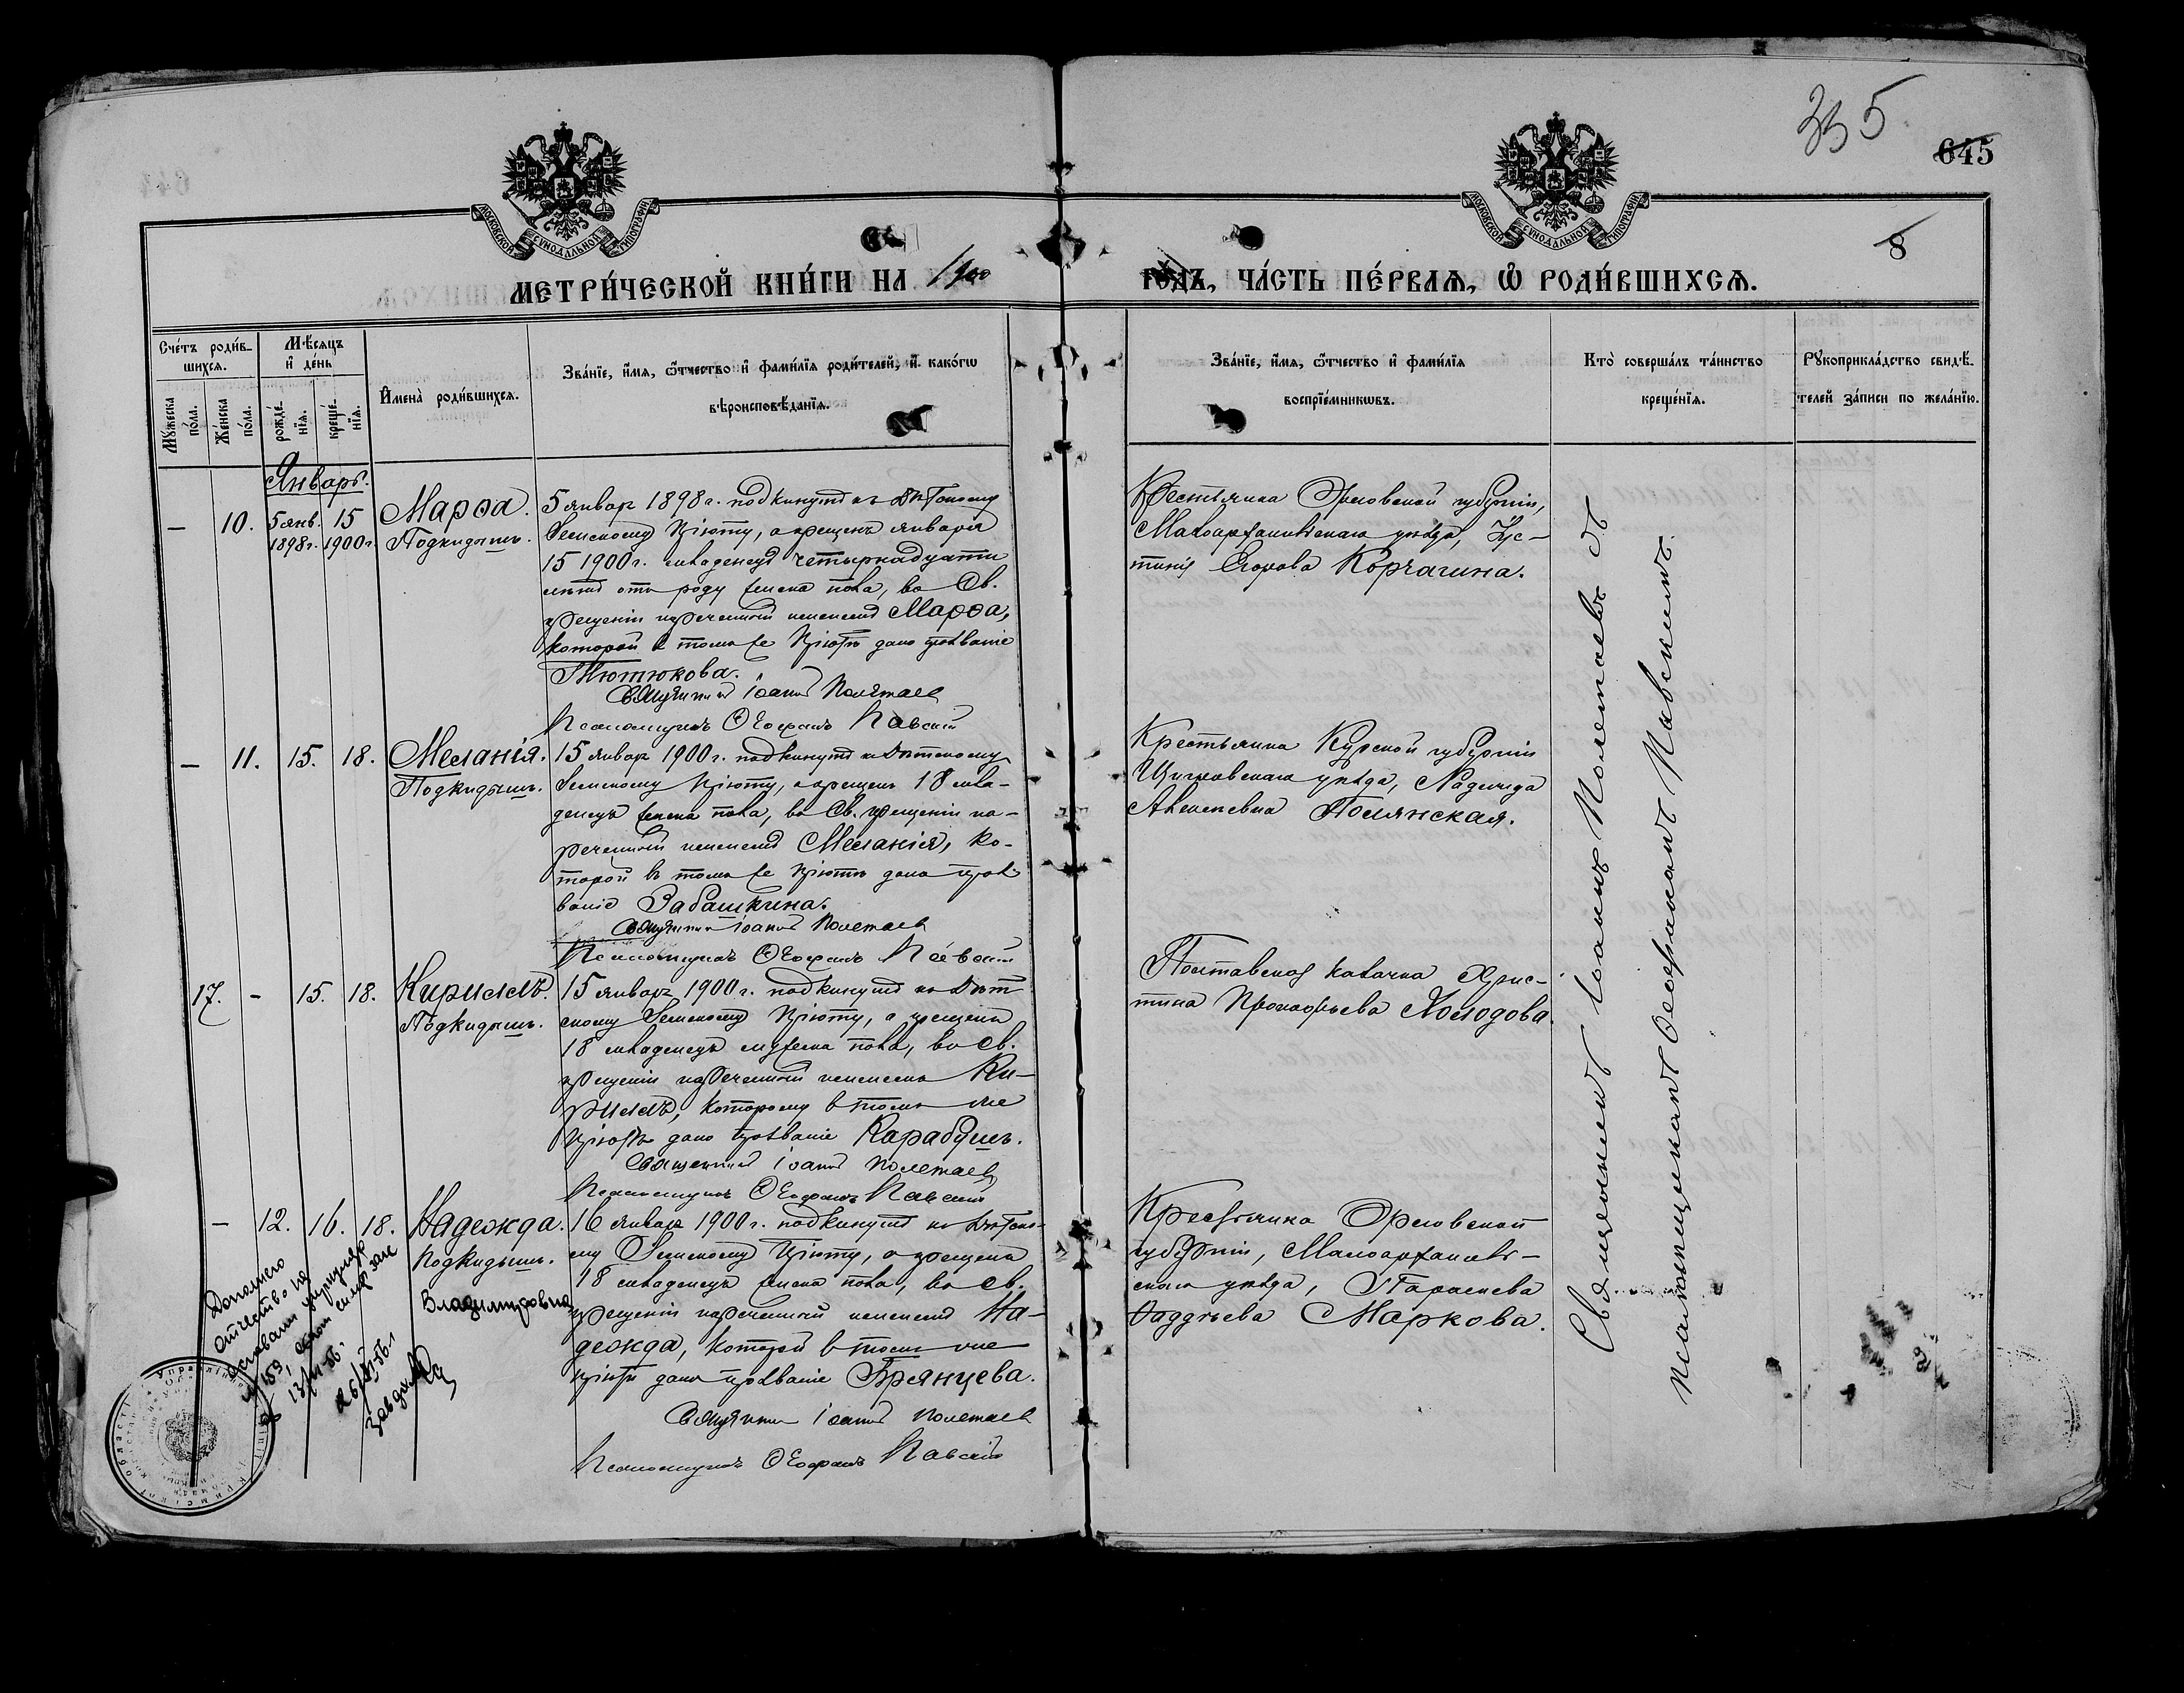 335
645
8
МОСКОВСКОЙ СУНОДАЛЬНОЙ ТИПОГРАФІИ
МОСКОВСКОЙ СУНОДАЛЬНОЙ ТИПОГРАФІИ
МЕТРИ́ЧЕСКОЙ КНИ́ГИ НА 1900
ГО́ДЪ, ЧА́СТЬ ПЕ́РВАѦ, Ѡ҆ РОДИ́ВШИХСѦ.
Сче́тъ роди́в-
шихсѧ.
Мꙋ́жеска по́ла.
Же́нска по́ла.
Мѣ́сѧцъ
и҆ де́нь
рожде́-
нїѧ.
креще́-
нїѧ.
И҆мена̀ роди́вшихсѧ.
Зва́нїе, и҆́мѧ, ѻ҆́тчество и҆ фами́лїѧ роди́телей, и҆ како́гѡ
вѣроисповѣ́данїѧ.
Зва́нїе, и҆́мѧ, ѻ҆́тчество и҆ фами́лїѧ
воспрїе́мникѡвъ.
Кто̀ соверша́лъ та́инство
креще́нїѧ.
Рꙋкоприкла́дство свидѣ́-
телей за́писи по жела́нїю.
Январь.
— 10. 5 янв. 1898 г. 15 1900 г.
Марѳа.
Подкидышъ.
5 январ 1898 г. подкинутъ къ Дѣтскому
Земскому Пріюту, а крещенъ января
15 1900 г. младенецъ четырнадцати
лѣтъ отъ роду женска пола, во Св.
крещеніи нареченный именемъ Марѳа,
которой в томъ же Пріютѣ дано прозваніе
Тютюкова.
Священникъ Іоаннъ Полетаев
Псаломщикъ Ѳеофанъ Павскій
Крестьянка Орловской губерніи,
Малоархангельскаго уѣзда, Іус-
тинія Егорова Корчагина.
— 11. 15. 18.
Меланія.
Подкидышъ.
15 январ 1900 г. подкинутъ къ Дѣтскому
Земскому Пріюту, а крещенъ 18 мла-
денецъ женска пола, во Св. крещеніи на-
реченный именемъ Меланія, ко-
торой въ томъ же пріютѣ дано проз-
ваніе Забашкина.
Священникъ Іоаннъ Полетаев
Псаломщикъ Ѳеофанъ Павскій
Крестьянка Курской губерніи
Щигровскаго уѣзда, Надежда
Алексеевна Полянская.
17. — 15. 18.
Кириллъ.
Подкидышъ.
15 январ 1900 г. подкинутъ къ Дѣт
скому Земскому Пріюту, а крещенъ
18 младенецъ мужеска пола, во Св.
крещеніи нареченный именемъ Ки-
риллъ, которому в томъ же
Пріютѣ дано прозваніе Карабушъ.
Священникъ Іоаннъ Полетаев
Псаломщикъ Ѳеофанъ Павскій
Полтавская казачка Хрис-
тина Прокофьева Холодова.
— 12. 16. 18.
Надежда.
Подкидышъ.
Владимировна
16 январ 1900 г. подкинутъ къ Дѣтско-
му Земскому Пріюту, а крещенъ
18 младенецъ женска пола, во Св.
крещеніи нареченный именемъ На-
дежда, которой в томъ же
пріютѣ дано прозваніе Брянцева.
Священникъ Іоаннъ Полетаев
Псаломщикъ Ѳеофанъ Павскій
Крестьянка Орловской
губерніи, Малоархангель-
скаго уѣзда, Параскева
Ѳаддѣева Маркова.
Священникъ Іоаннъ Полетаевъ съ
псаломщикомъ Ѳеофаномъ Павскимъ.
отчество на
основании циркуляр